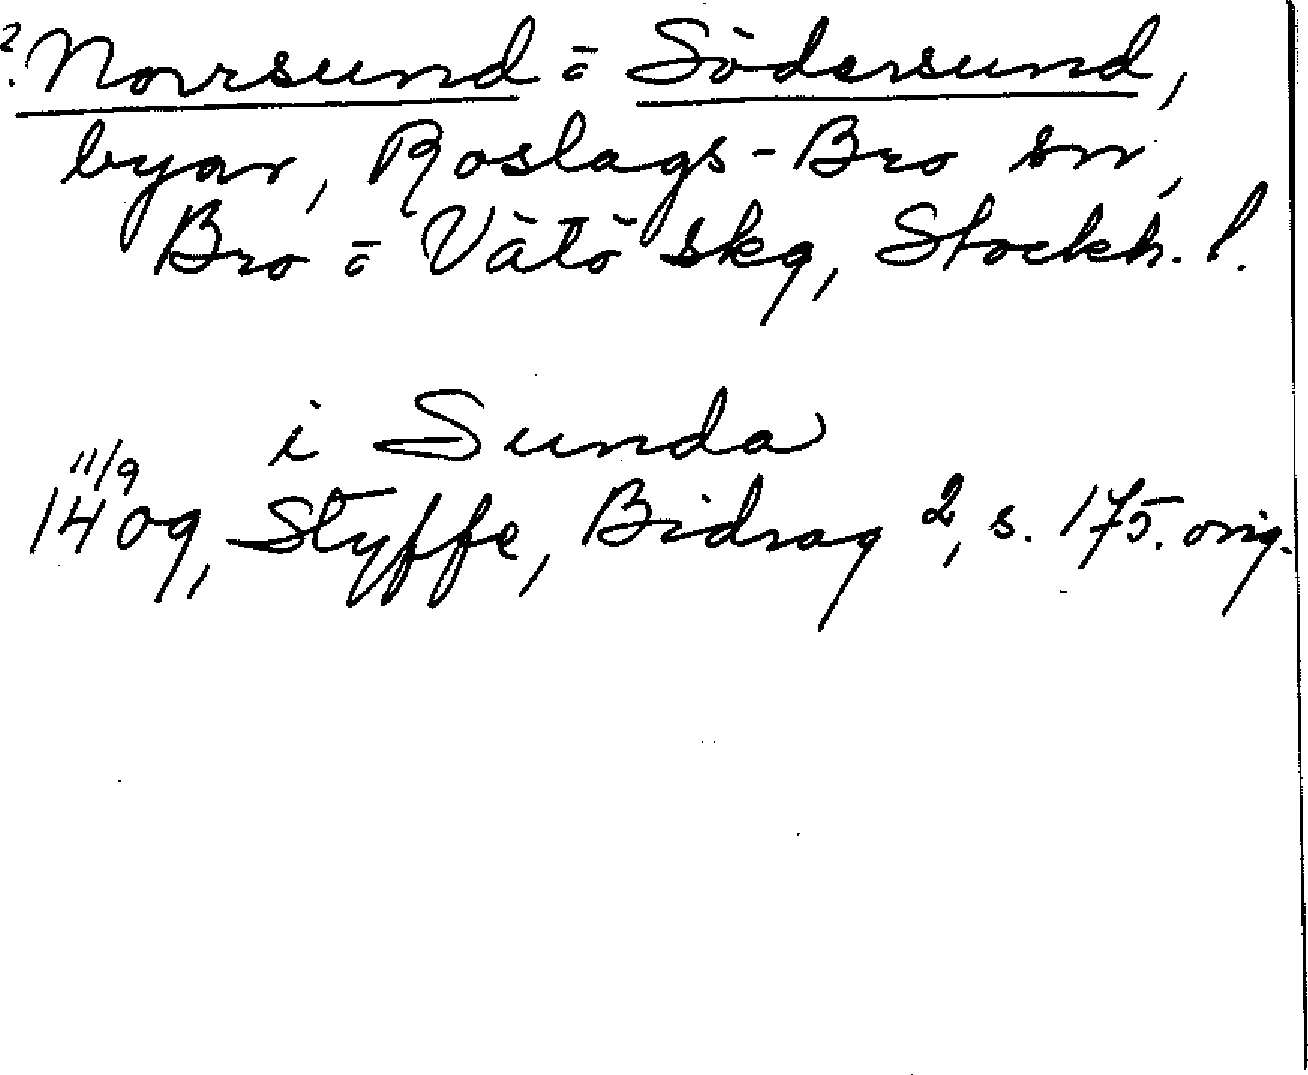 ? Norrsund o Södersund,
byar, Roslags-Bro sn,
Bro o Vätö skg, Stockh. l.
i Sunda
11/9
1409, Styffe, Bidrag 2, s. 175. orig.